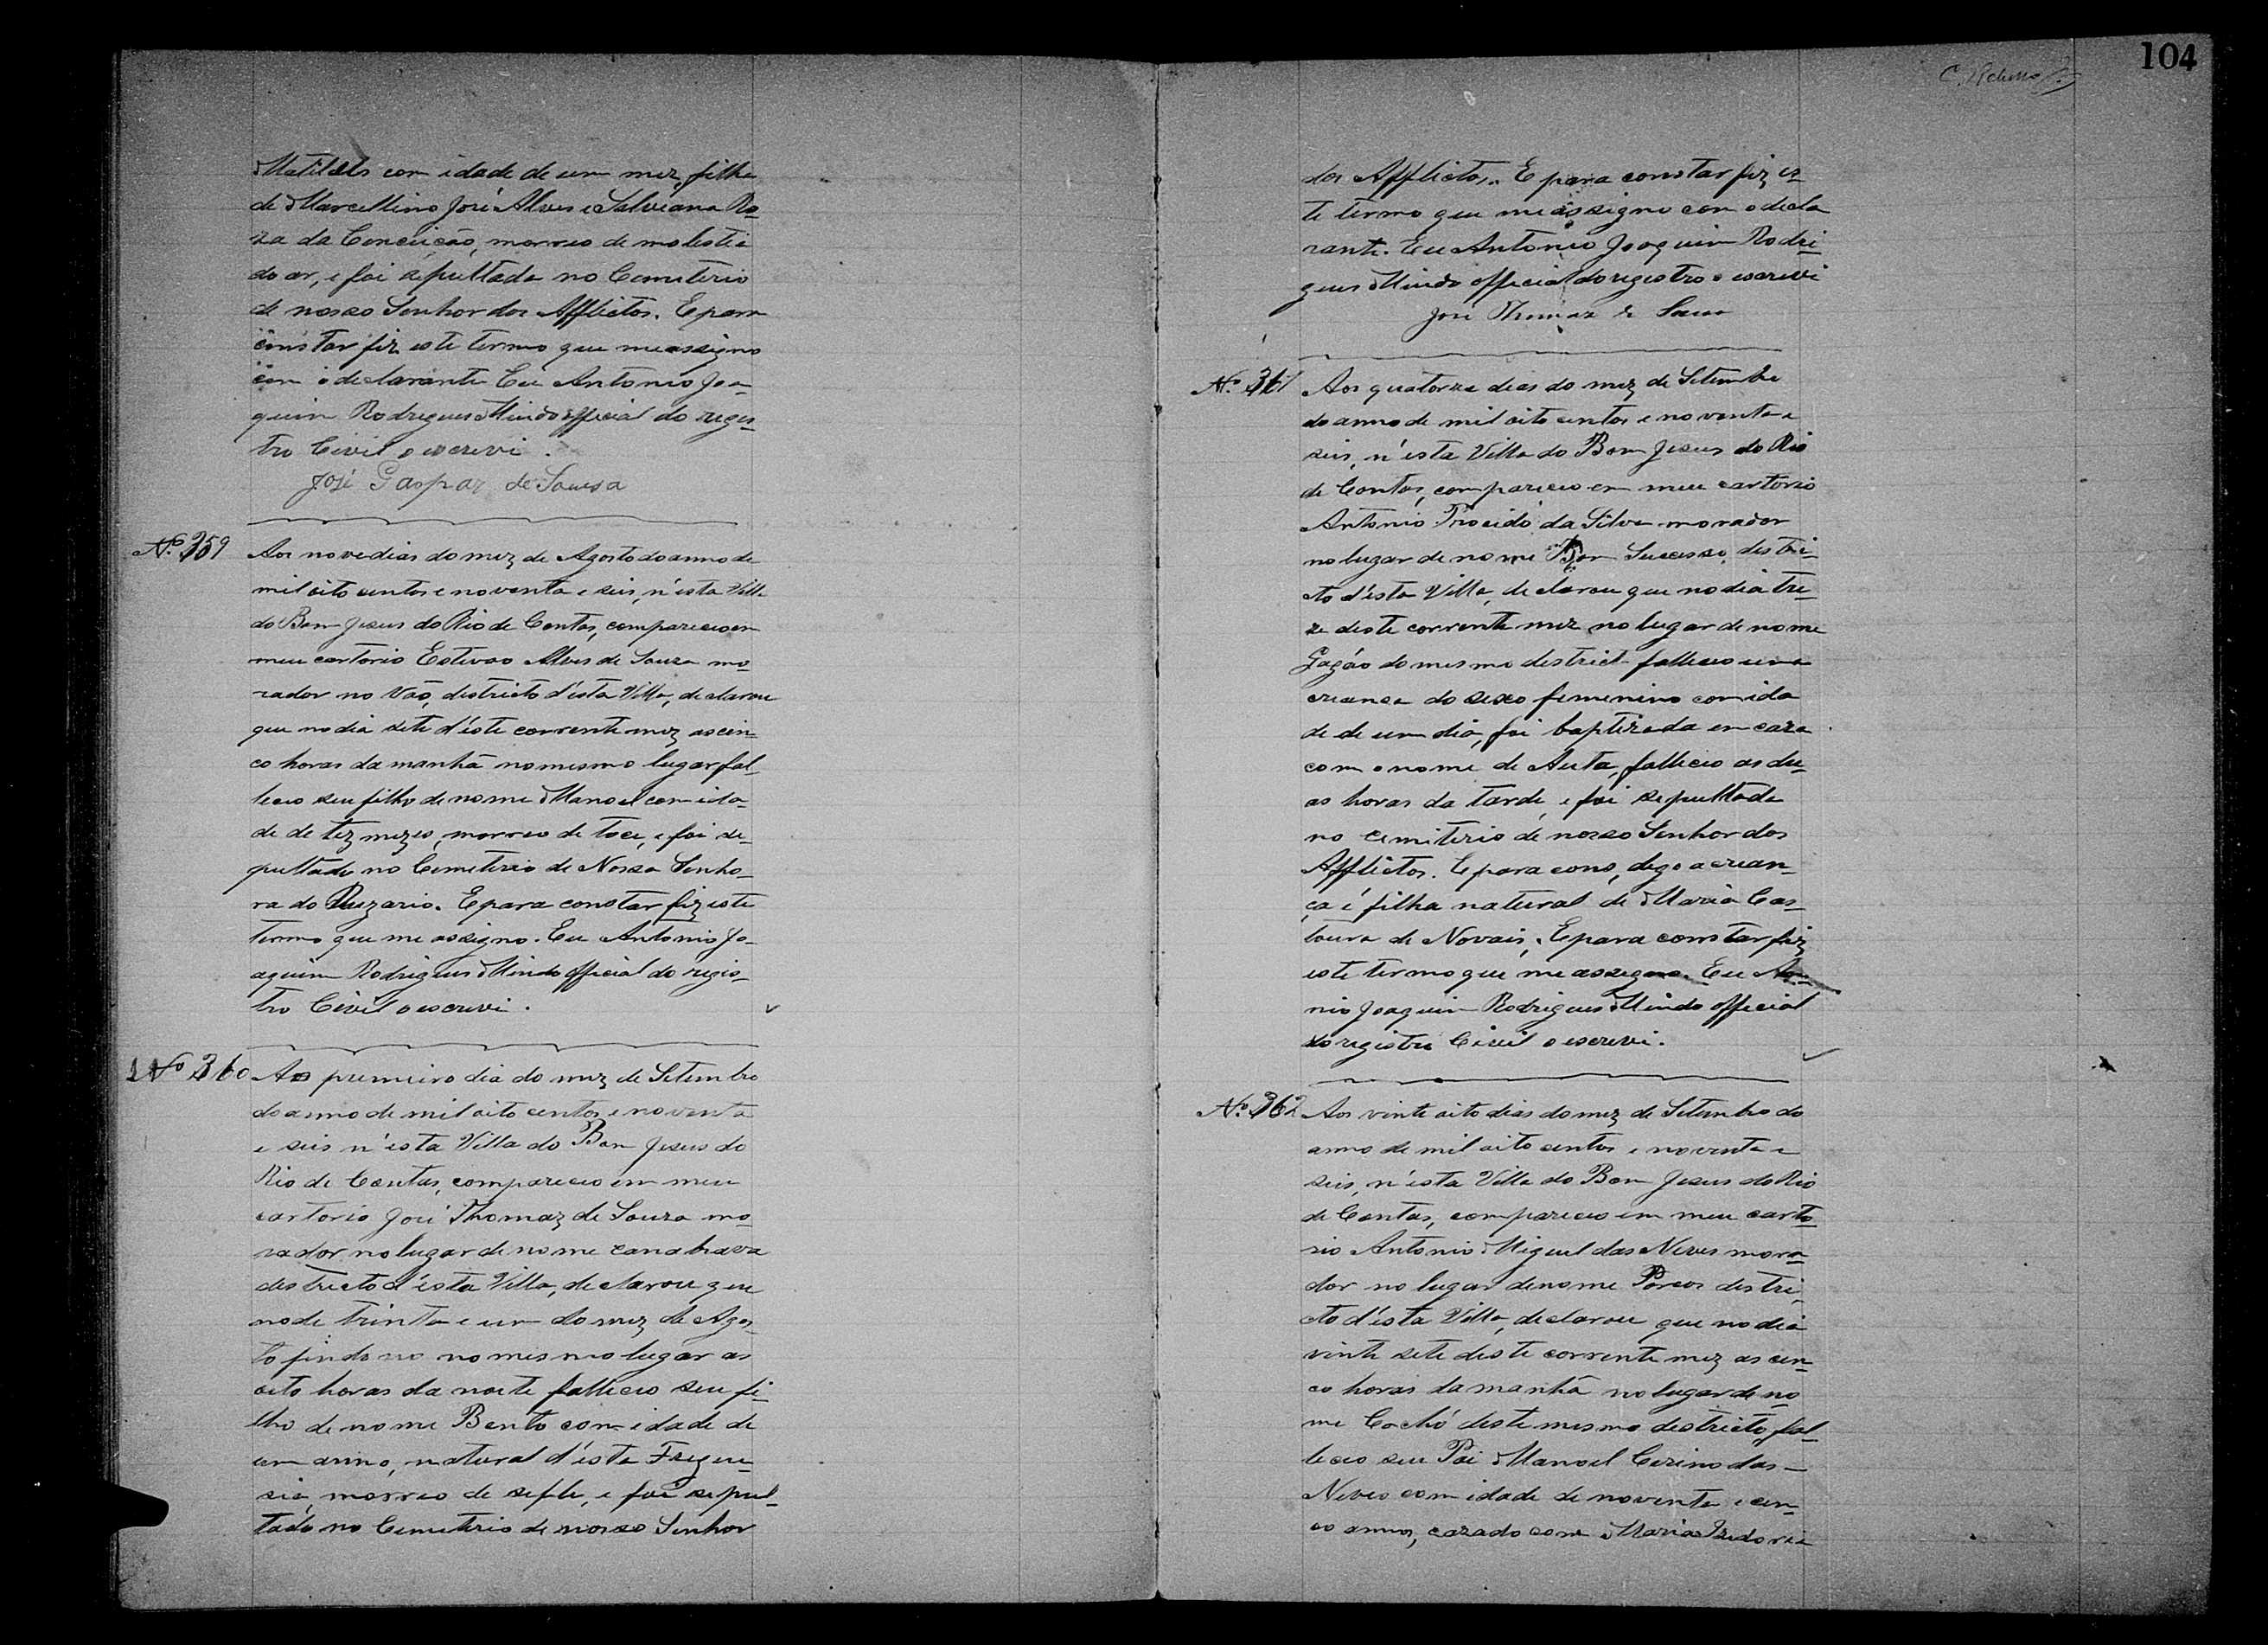 Matildes com idade de um mez, filha
de Marcellino José Alves e Salviana Ro-
za da Conceição, morreo de molestia
do ar, e foi sepultada no Cemeterio
de nosso Senhor dos Afflictos. E para
constar fiz este termo que me assigno
com o declarante Eu Antonio Joa-
quim Rodrigues Mindo official do regis-
tro Civil o escrevi.
José Gaspar de Sousa
Nº 359 Aos nove dias do mez de Agosto do anno de
mil oito centos e noventa e seis, n'esta Villa
do Bom Jesus do Rio de Contas, compareceo em
meu cartorio Estevao Alves de Souza mo-
rador no Vão, districto d'esta Villa, declarou
que no dia sete d'este corrente mez as cin-
co horas da manhã no mesmo lugar fal-
leceo seu filho de nome Manoel com ida-
de de tez mezes, morreo de toce, e foi se-
pultado no Cemeterio de Nossa Senho-
ra do Ruzario. E para constar fiz este
termo que me assigno. Eu Antonio Jo-
aquim Rodrigues Mindo official do regis-
tro Civil o escrevi.
Nº 360 Ao premeiro dia do mez de Setembro
do anno de mil oito centos e noventa
e seis n'esta Villa do Bom Jesus do
Rio de Contas, compareceo em meu
cartorio José Thomaz de Souza mo-
rador no lugar de nome canabrava
destricto d'esta Villa, declarou que
no de trinta e um do mez de Agos-
to findo no no mesmo lugar as
oito horas da noite falleceo seu fi-
lho de nome Bento com idade de
um anno, natural d'esta Fregue-
sia, morreo de sefle, e foi sepul-
tado no Cemeterio de nosso Senhor
104
dos Afflictos. E para constar fiz es-
te termo que me assigno com o decla
rante. Eu Antonio Joaquim Rodri-
gues Mindo official do registro o escrevi
José Thomaz de Souza
Nº 361 Aos quatorze dias do mez de Setembro
do anno de mil oito centos e noventa e
seis, n'esta Villa do Bom Jesus do Rio
de Contas, compareceo em meu cartorio
Antonio Procido da Silva morador
no lugar de nome Bom Sucesso, destri-
cto d'esta Villa, declarou que no dia tre-
ze deste corrente mez no lugar de nome
Gagão do mesmo destrict falleceo uma
creança do sexo femenino com ida
de de um dia, foi baptizada em caza
com o nome de Auta, falleceo as du-
as horas da tarde, e foi sepultada
no cemiterio de nosso Senhor dos
Afflictos. E para cons, dego a crean-
ça é filha natural de Maria Cas-
toura de Novais. E para constar fiz
este termo que me assegno. Eu Anto-
nio Joaquim Rodrigues Mindo official
do registro Civil o escrevi.
Nº 362 Aos vinte oito dias do mez de Setembro do
anno de mil oito centos e noventa e
seis, n'esta Villa do Bom Jesus do Rio
de Contas, compareceo em meu carto
rio Antonio Miguel das Neves mora-
dor no lugar de nome Porcos destri-
cto d'esta Villa, declarou que no dia
vinte sete deste corrente mez as cin-
co horas da manhã no lugar de no
me Cochó deste mesmo destricto, fal-
leceo seu Pai Manoel Cirino das
Neves com idade de noventa e cin-
co annos, cazado com Maria Izedoria